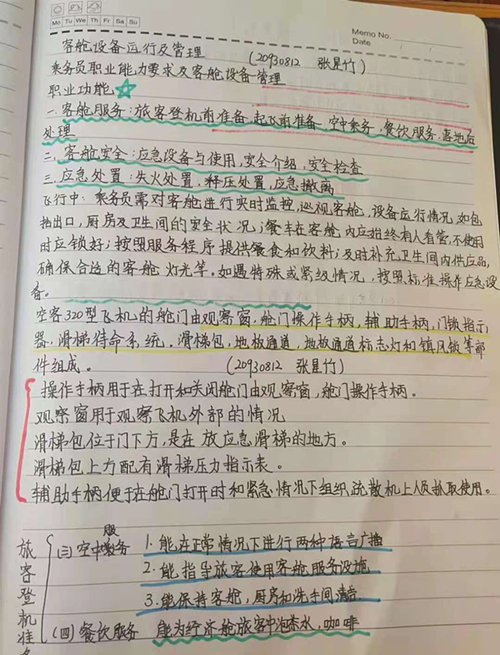 Mo Tu We Th Fr Sa Su
Memo No.
Date
客舱设备运行及管理 (20930812 张星竹)
乘务员职业能力要求及客舱设备管理
职业功能
一.客舱服务:旅客登机前准备.起飞前准备.空中乘务.餐饮服务.落地后
处理
二.客舱安全:应急设备与使用,安全介绍,安全检查
三.应急处置:失火处置,释压处置,应急撤离
飞行中、乘务员需对客舱进行实时监控,巡视客舱,设备运行情况,如包
括出口,厨房及卫生间的安全状况;餐车在客舱内应始终有人看管,不使用
时应锁好;按照服务程序提供餐食和饮料;及时补充卫生间内供应品,
确保合适的客舱灯光等。如遇特殊或紧级情况,按照标准操作应急设
备。
空客320型飞机的舱门由观察窗,舱门操作手柄,辅助手柄,门锁指示
器,滑梯待命系统.滑梯包,地板通道,地板通道标志灯和镇风锁等部
件组成。 (20930812 张星竹)
操作手柄用于在打开和关闭舱门由观察窗,舱门操作手柄。
观察窗用于观察飞机外部的情况
滑梯包位于门下方,是在放应急滑梯的地方。
滑梯包上方配有滑梯压力指示表。
辅助手柄便于在舱门打开时和紧急情况下组织疏散机上人员抓取使用。
旅客登机准
(三)空中服务
1.能在正常情况下进行两种语言广播
2.能指导旅客使用客舱服务设施
3.能保持客舱,厨房和洗手间清洁
(四)餐饮服务 能为经济舱旅客冲泡茶水,咖啡